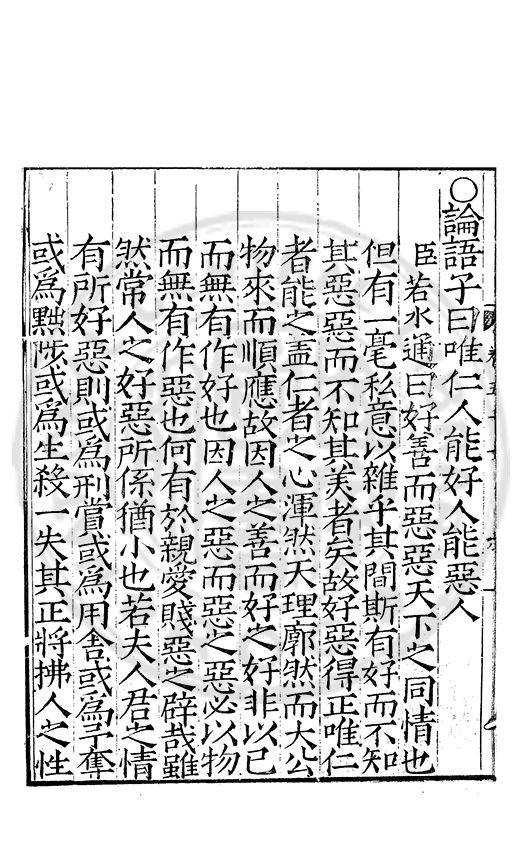 ○論語子曰唯仁人能好人能惡人
臣若水通曰好善而惡惡天下之同情也
但有一毫私意以雜乎其間斯有好而不知
其惡惡而不知其美者矣故好惡得正唯仁
者能之盖仁者之心渾然天理廓然而大公
物來而順應故因人之善而好之好非以已
而無有作好也因人之惡而惡之惡必以物
而無有作惡也何有於親愛賤惡之辟哉雖
然常人之好惡所係猶小也若夫人君之情
有所好惡則或為刑賞或為用舎或為予奪
或為黜陟或為生殺一失其正將拂人之性